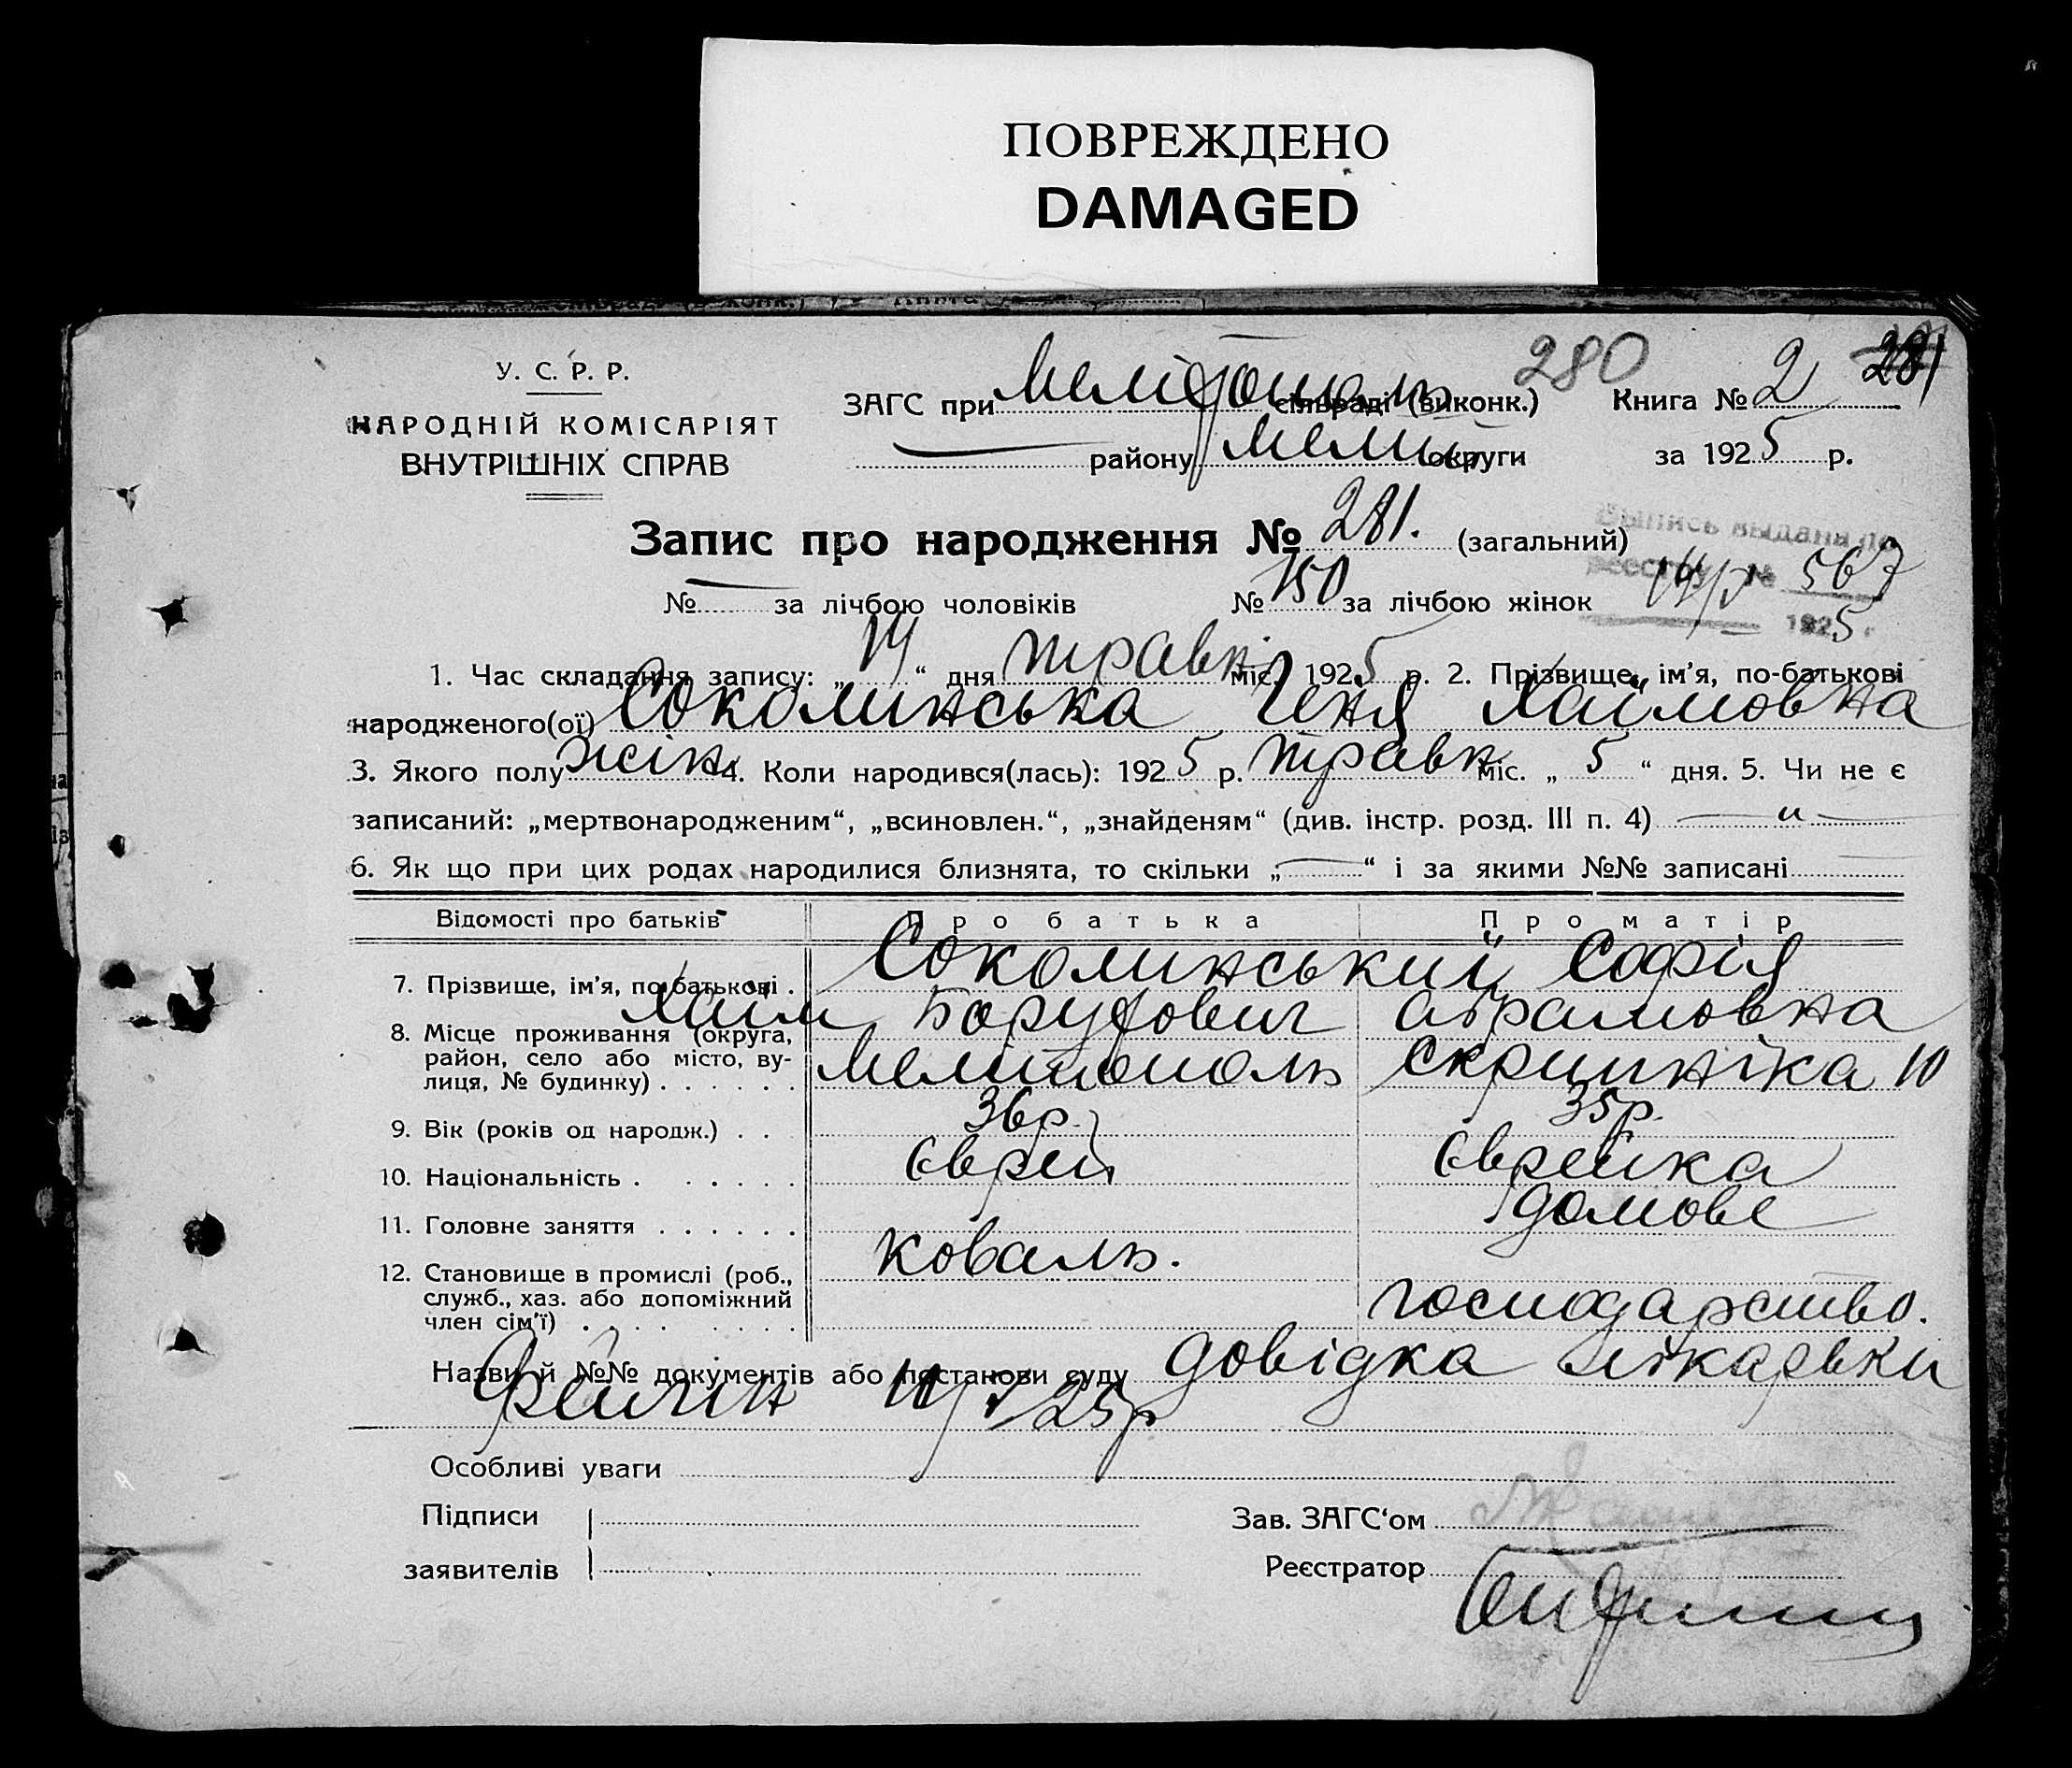 ПОВРЕЖДЕНО
DAMAGED
У. С. Р. Р.
НАРОДНІЙ КОМІСАРІЯТ
ВНУТРІШНІХ СПРАВ
280 281
ЗАГС при Мелітополь сільраді (виконк.) Книга № 2
— району Мелит округи за 1925 р.
Запис про народження № 281. (загальний)
Выпись выдана по
реестру № 567
14/V 1925 г
№ — за лічбою чоловіків № 150 за лічбою жінок
1. Час складання запису: „14“ дня травн міс. 1925 р. 2. Прізвище, ім'я, по-батькові
народженого(ої) Соколинська Геня Хаймовна
3. Якого полу жін. 4. Коли народився(лась): 1925 р. травн міс. „5“ дня. 5. Чи не є
записаний: „мертвонародженим“, „всиновлен.“, „знайденям“ (див. інстр. розд. III п. 4) — „ —
6. Як що при цих родах народилися близнята, то скільки „—“ і за якими №№ записані
Відомості про батьків Про батька Про матір
7. Прізвище, ім'я, по-батькові . Соколинський Хаїм Борухович Софія Абрамовна
8. Місце проживання (округа,
район, село або місто, ву-
лиця, № будинку) . . . . . . Мелітополь Скрипніка 10
9. Вік (років од народж.) . . 36 р. 35 р.
10. Національність . . . . . . Єврей Єврейка
11. Головне заняття . . . . . . коваль. домове
12. Становище в промислі (роб.,
служб., хаз. або допоміжний
член сім'ї) . . . . . . . . господарство.
Назви й №№ документів або постанови суду довідка лікарьки
Фейгін 10/V 25 р
Особливі уваги
Підписи
заявителів
Зав. ЗАГС'ом
Реєстратор